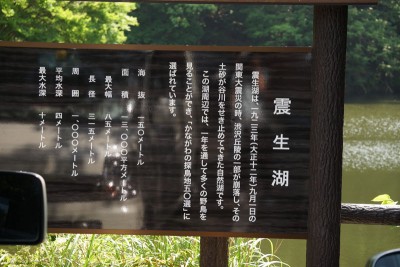 震生湖
震生湖は、一九二三年(大正十二年)九月一日の
関東大震災の時、渋沢丘陵の一部が崩落し、その
土砂が谷川をせき止めてできた自然湖です。
この湖周辺では、一年を通して多くの野鳥を
見ることができ、「かながわの探鳥地五〇選」に
選ばれています。
海抜 一五〇メートル
面積 一三、〇〇〇平方メートル
最大幅 八五メートル
長径 三一五メートル
周囲 一、〇〇〇メートル
平均水深 四メートル
最大水深 十メートル